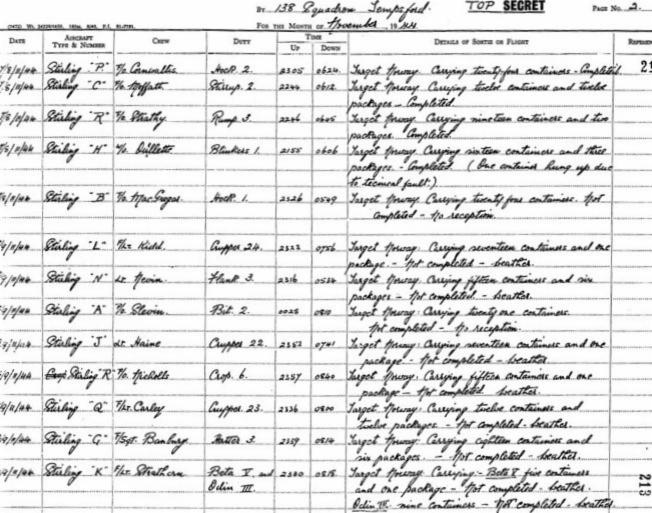 By 138 Squadron Tempsford. TOP SECRET PAGE No. 2.
FOR THE MONTH OF November 1944
DATE AIRCRAFT TYPE & NUMBER CREW DUTY TIME UP DOWN DETAILS OF SORTIE OR FLIGHT
7/8/11/44 Stirling "P" F/O Cornwallis Hock. 2 2305 0624 Target Norway. Carrying twenty-four containers - Completed.
Stirling "C" F/O Moffath Stirrup. 2 2244 0612 Target Norway. Carrying twelve containers and twelve
packages - Completed.
Stirling "R" F/O Strathy Rump. 3 2246 0605 Target Norway. Carrying nineteen containers and two
packages. Completed.
Stirling "H" F/O Blinkers 1. 2155 0606 Target Norway. Carrying sixteen containers and three
packages - Completed. (One container hung up due
to tecnical fault.)
Stirling "B" F/O MacGregor. Hock. 1. 2326 0549 Target Norway. Carrying twenty four containers. Not
completed - No reception.
Stirling "L" Kidd. Crupper 24. 2323 0756 Target Norway. Carrying seventeen containers and one
package - Not completed - Weather.
Stirling "N" Lt. Nevin. Flank 3. 2316 Target Norway. Carrying fifteen containers and six
packages - Not completed - Weather.
Stirling "A" F/O Slevin. Bit. 2. 0028 0810 Target Norway. Carrying twenty one containers.
Not completed - No reception.
Stirling "J" Lt. Haine Crupper 22. 2352 0741 Target Norway. Carrying seventeen containers and one
package - Not completed - Weather.
Stirling "R" F/O. Nicholls Crop. 6. 2357 0840 Target Norway. Carrying fifteen containers and one
package - Not completed. Weather.
Stirling "Q" F/Lt. Curley Crupper. 23. 2336 0800 Target Norway. Carrying twelve containers and
twelve packages - Not completed - Weather.
Stirling "G" F/Sgt. Banbury. 3. 2359 0814 Target Norway. Carrying eighteen containers and
six packages. - Not completed - Weather.
Stirling "K" F/Lt. Strathern Beta V and 2330 0818 Target Norway. Carrying:- Beta V five containers
Odin III. and one package - Not completed - Weather.
Odin III nine containers - Not completed - Weather.
213